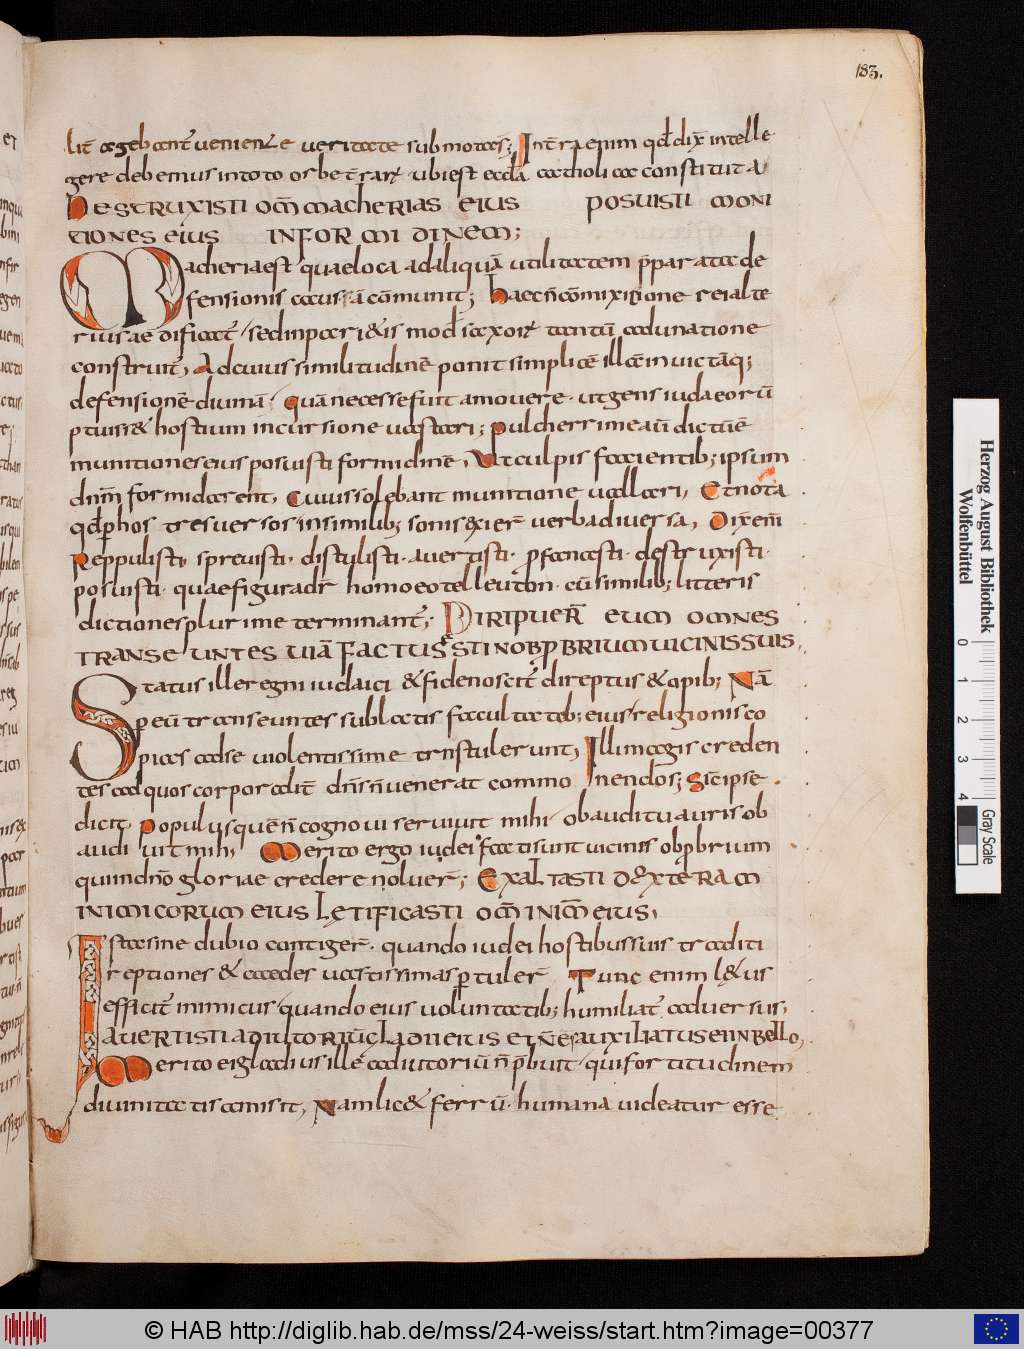 183.
lit̄ agebant᷑ veniente veritate submotas; Int̄ra enim qđ dix̄ intelle
gere debemus intoto orbe t̄rarꝝ ubi est eccl̄a catholica constituta
DESTRUXISTI OM̄ MACHERIAS EIUS POSUISTI MONI
TIONES EIUS IN FORMIDINEM;
Macheria est quae loca ad aliquā utilitatem p̄parata de
fensionis causā cōmunit; haec n̄ cōmixtione rei alte
rius aedificat᷑ sed in parietis mod̄ saxorꝝ tantū adunatione
construit᷑, Ad cuius similitudinē ponit simplicē illā inuictāq;
defensionē diuinā, Quā necesse fuit amouere. ut gens iudaeorū
ꝑtuisset hostium incursione uastari; Pulcherrime aū dictū ē
munitiones eius posuisti formidinē, Ut culpis facientib; ipsum
dn̄m formidarent, Cuius solebant munitione uallari, Et nota
qđ ꝑ hos tres uersos in similib; sonis exier̄ uerba diuersa, Dix̄ enī
Reppulisti, spreuisti, distulisti. auertisti. ꝓfanasti. destruxisti.
posuisti. quae figura dr̄ homoeoteleuton. cū similib; litteris
dictiones plurime terminant᷑; DIRIPUER̄ EUM OMNES
TRANSEUNTES UIĀ FACTUS ĒSTI NOBP̄BRIUM UICINIS SUIS,
Status ille regni iudaici & fidenoscit᷑ direptus & opib; Nā
ꝑ eū transeuntes sublatis facultatab; eius religionis co
pias ad se uiolentissime transtuler unt, Illi magis creden
tes ad quos corporalit̄ dn̄s n̄ uenerat commo nendos; Sic ipse
dicit, Populus quē n̄ cognoui seruiuit mihi obauditu auris ob
audi uit mihi, Merito ergo iudei facti sunt uicinis obp̄brium
qui in dn̄o gloriae credere noluer̄; EXALTASTI DEXTERAM
INIMICORUM EIUS LĘTIFICASTI OM̄ INIMC̄ EIUS,
Ista sine dubio contiger̄. quando iudei hostibus suis traditi
reptiones & caedes uastissimas ꝑtuler̄ Tunc enim l&us
efficit᷑ inimicus quando eius uoluntatib; humiliat᷑ aduersus,
AUERTISTI ADIUTORIŪ GLADII EIUS ET N̄ ES AUXILIATUS EI IN BELLO,
Merito ei gladius ille adiutoriū n̄ p̄buit qui fortitudinem
diuinitatis amisit, Nam lic& ferrū humana uideatur esse
Herzog August Bibliothek
Wolfenbüttel
0 1 2 3 4
Gray Scale
© HAB http://diglib.hab.de/mss/24-weiss/start.htm?image=00377